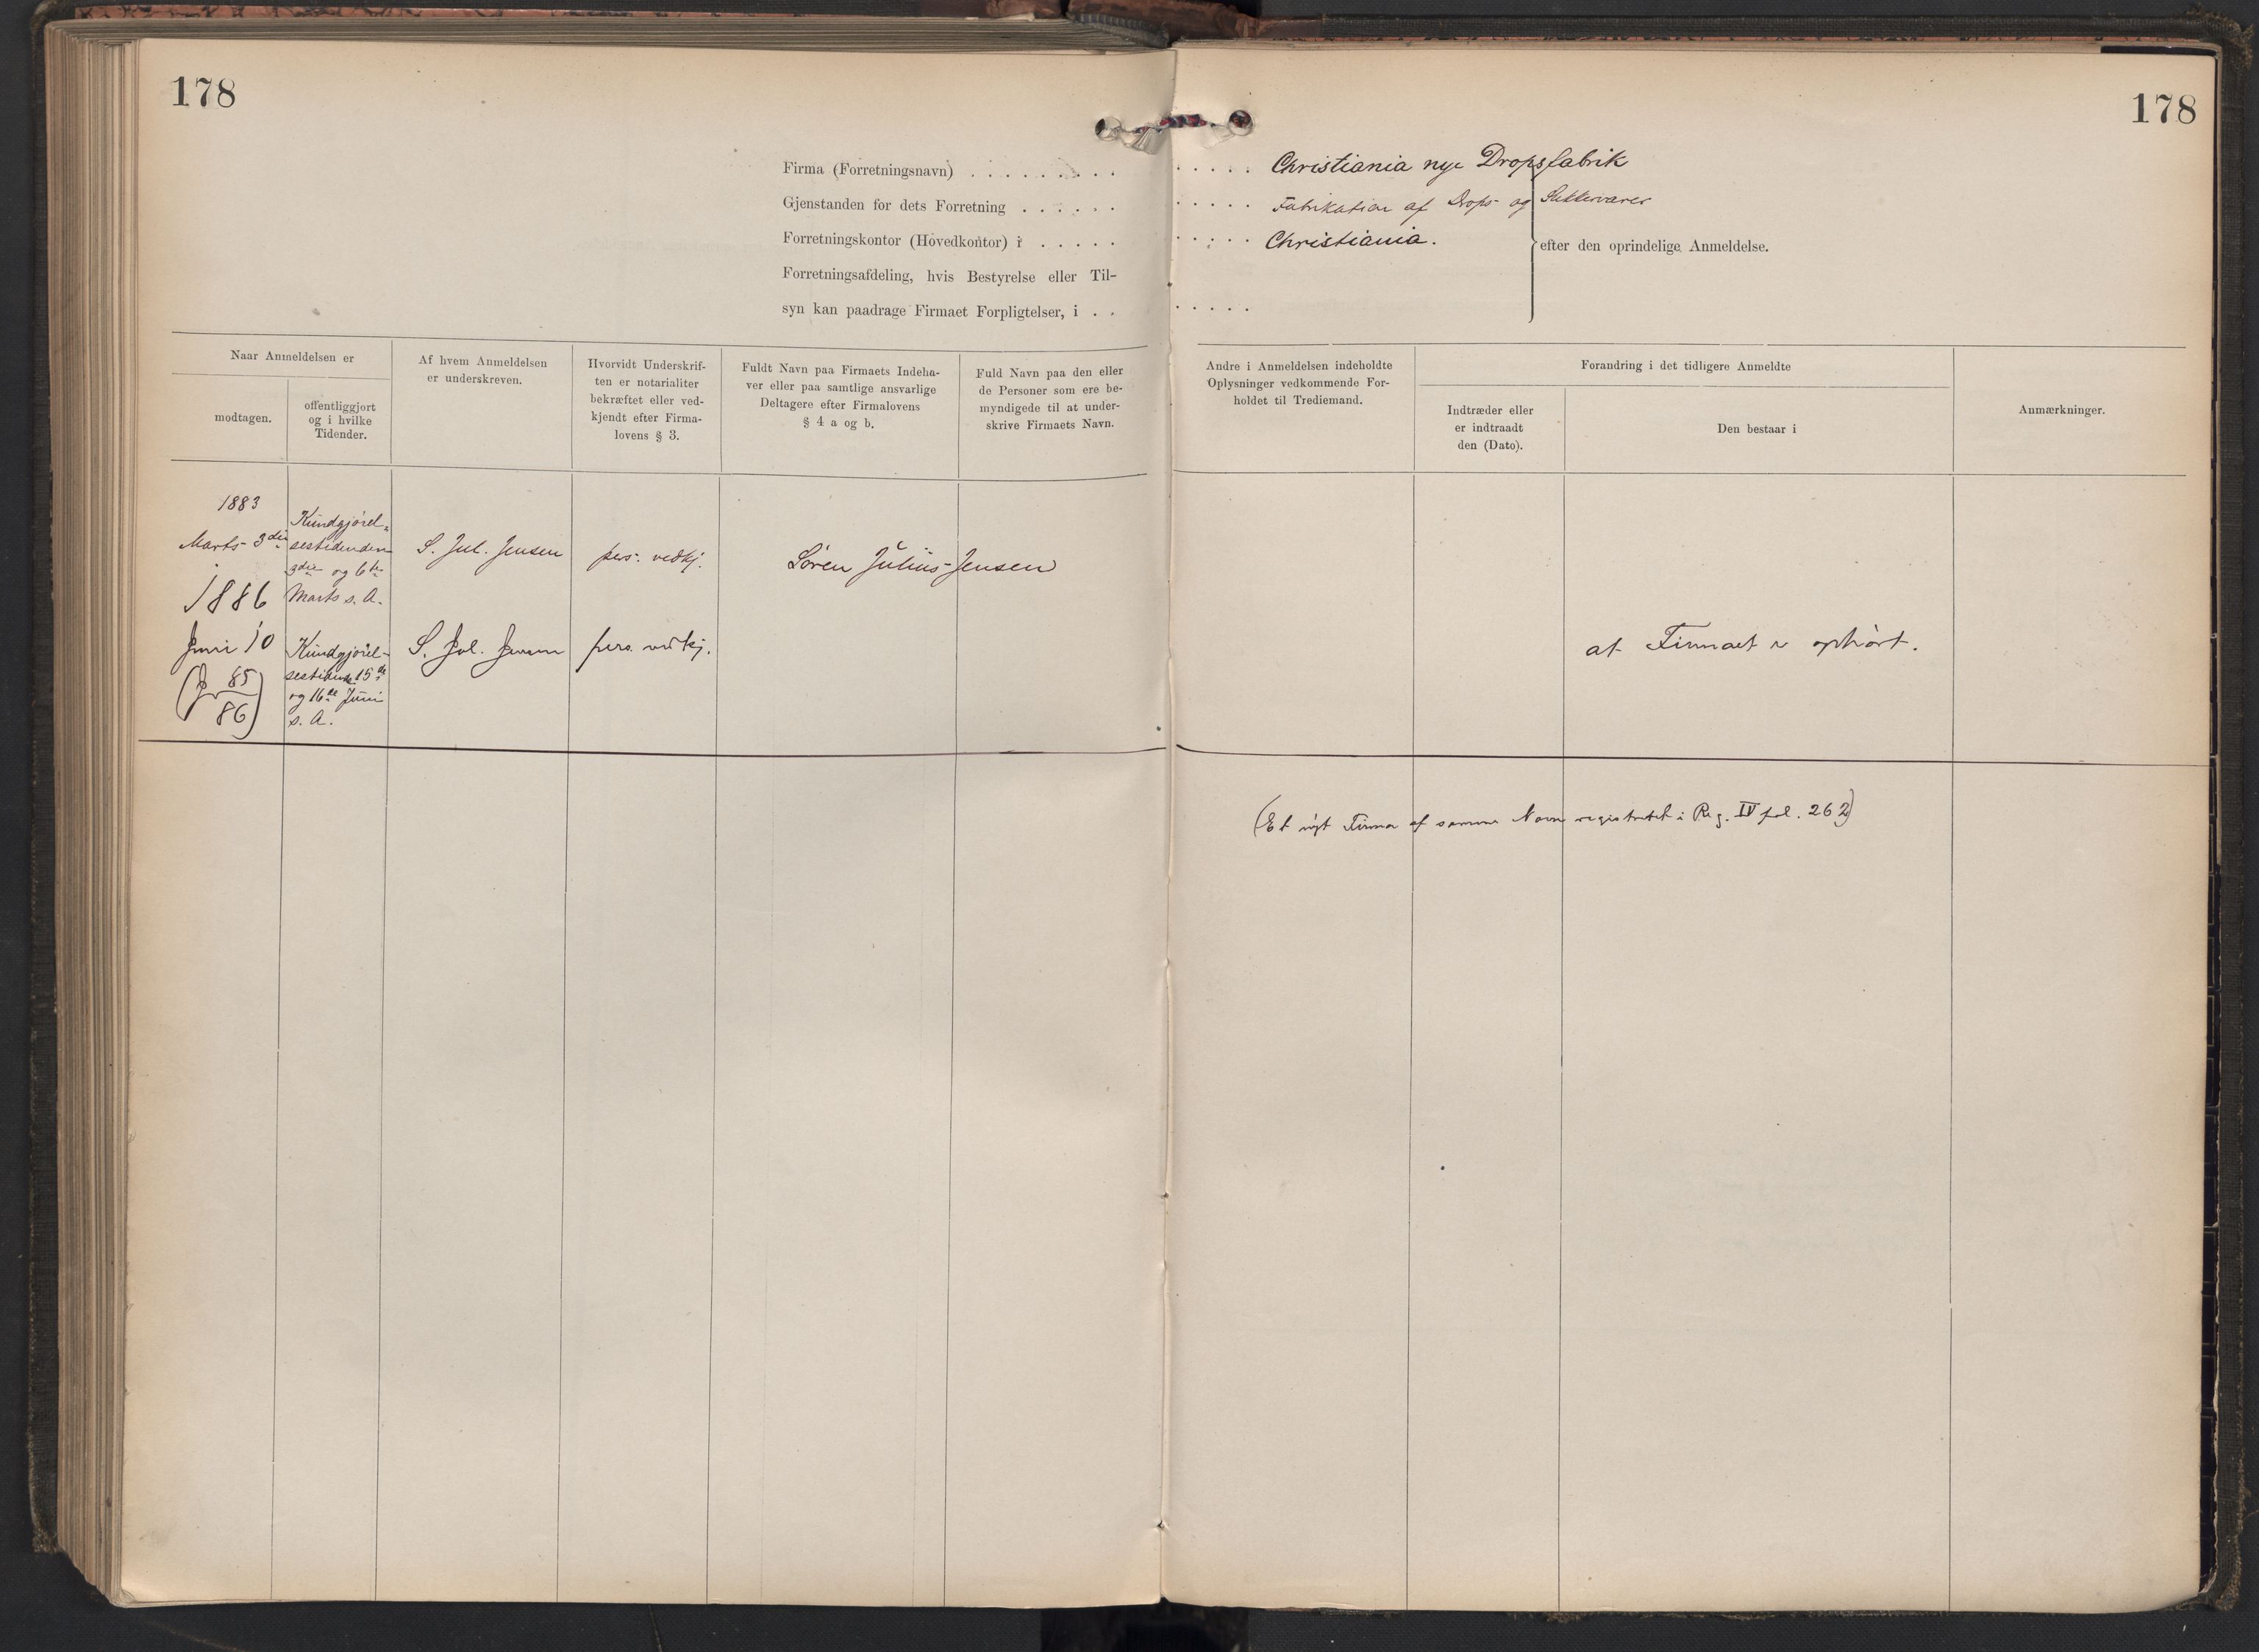 178
178
Firma (Forretningsnavn) . . . . . . . . . . . . . . Christiania nye Dropsfabrik
Gjenstanden for dets Forretning . . . . . . . . . . . Fabrikation af Drops- og Sukkervarer
Forretningskontor (Hovedkontor) i . . . . . . . . . . Christiania.
efter den oprindelige Anmeldelse.
Forretningsafdeling, hvis Bestyrelse eller Til-
syn kan paadrage Firmaet Forpligtelser, i . . . . . . .
Naar Anmeldelsen er
modtagen.
offentliggjort
og i hvilke
Tidender.
Af hvem Anmeldelsen
er underskreven.
Hvorvidt Underskrif-
ten er notarialiter
bekræftet eller ved-
kjendt efter Firma-
lovens § 3.
Fuldt Navn paa Firmaets Indeha-
ver eller paa samtlige ansvarlige
Deltagere efter Firmalovens
§ 4 a og b.
Fuld Navn paa den eller
de Personer som ere be-
myndigede til at under-
skrive Firmaets Navn.
Andre i Anmeldelsen indeholdte
Oplysninger vedkommende For-
holdet til Trediemand.
Forandring i det tidligere Anmeldte
Indtræder eller
er indtraadt
den (Dato).
Den bestaar i
Anmærkninger.
1883
Marts 3die
Kundgjørel-
sestidenden
3die og 6te
Marts s. A.
S. Jul. Jensen
pers. vedkj.
Søren Julius Jensen
1886
Juni 10
(J 85
86)
Kundgjørel-
sestidende 15de
og 16de Juni
s. A.
S. Jul. Jensen
pers. vedkj.
at Firmaet er ophørt.
(Et nyt Firma af samme Navn registreret i Reg. IV fol. 262)